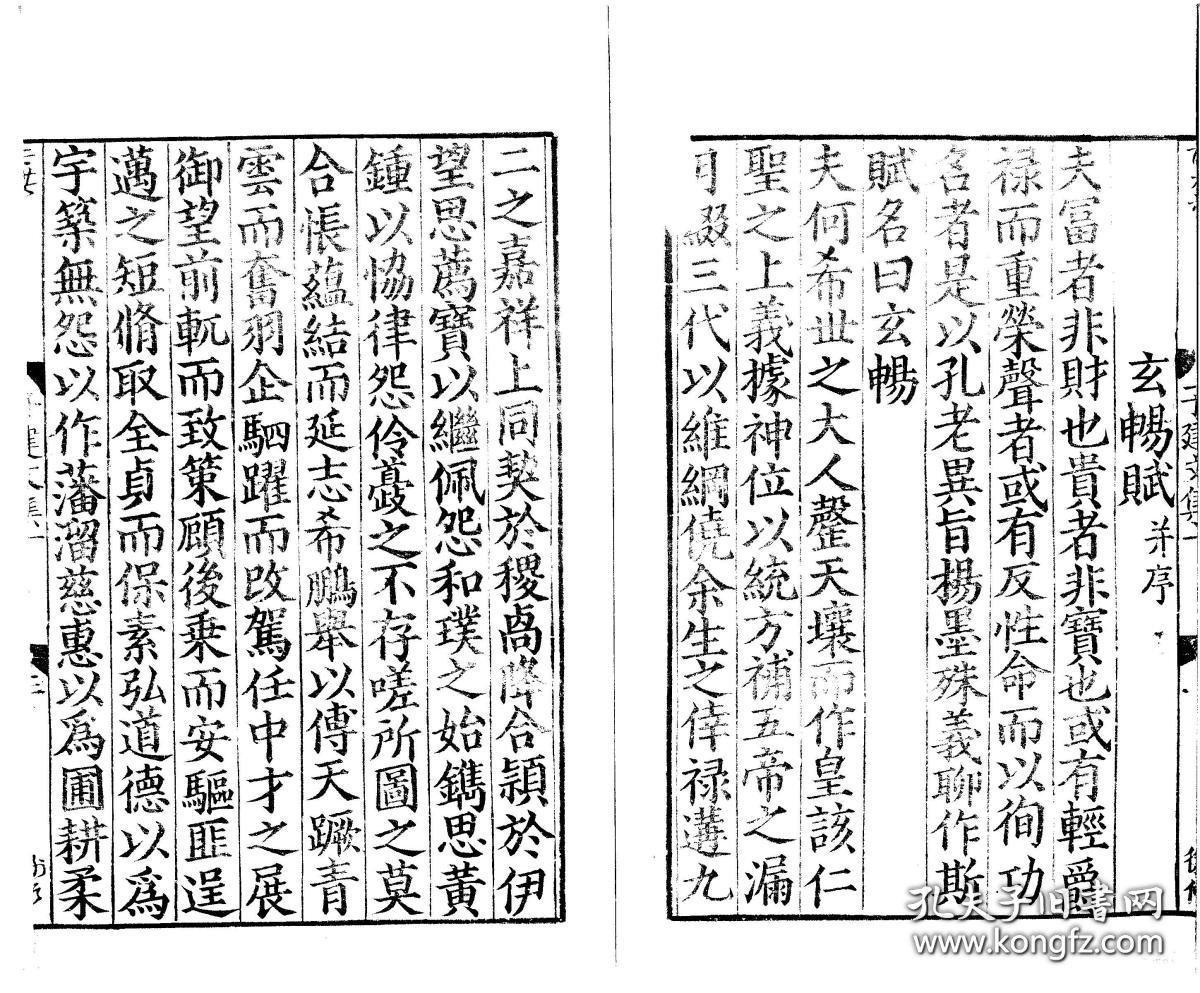 玄暢賦 并序
夫冨者非財也貴者非寶也或有輕爵
禄而重榮聲者或有反性命而以徇功
名者是以孔老異旨楊墨殊義聊作斯
賦名曰玄暢
夫何希丗之大人罄天壤而作皇該仁
聖之上義據神位以統方補五帝之漏
目綴三代以維綱僥余生之倖禄遘九
二之嘉祥上同契於稷卨降合頴於伊
望思薦寶以繼佩怨和璞之始鐫思黃
鍾以恊律怨伶夔之不存嗟所圖之莫
合悵蘊結而延志希鵬舉以傅天蹶青
雲而奮羽企駟躍而改駕任中才之展
御望前軏而致策顧後乗而安驅匪逞
邁之短脩取全貞而保素弘道德以爲
宇築無怨以作藩溜慈惠以爲圃耕柔
子建文集一
孔夫子旧书网
www.kongfz.com